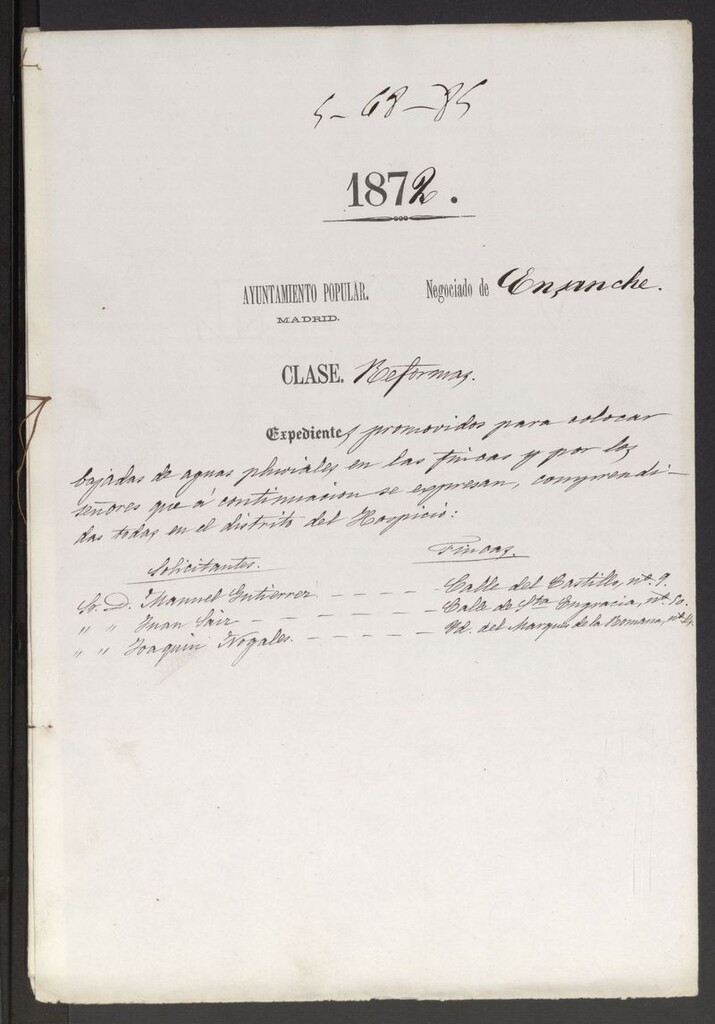 5-68-85
1872.
AYUNTAMIENTO POPULAR. Negociado de Ensanche.
MADRID.
CLASE. Reformas.
Expedientes promovidos para colocar
bajadas de aguas pluviales en las fincas y por los
señores que á continuacion se expresan, comprendi-
das todas en el distrito del Hospicio:
Solicitantes. Fincas.
Sr. D. Manuel Gutierrez - - - - Calle del Castillo, nº. 9.
" " Juan Sáiz - - - - - - Calle de Sta Engracia, nº. 50.
" " Joaquin Nogales. - - - - - Yd. del Marqués de la Romana, nº